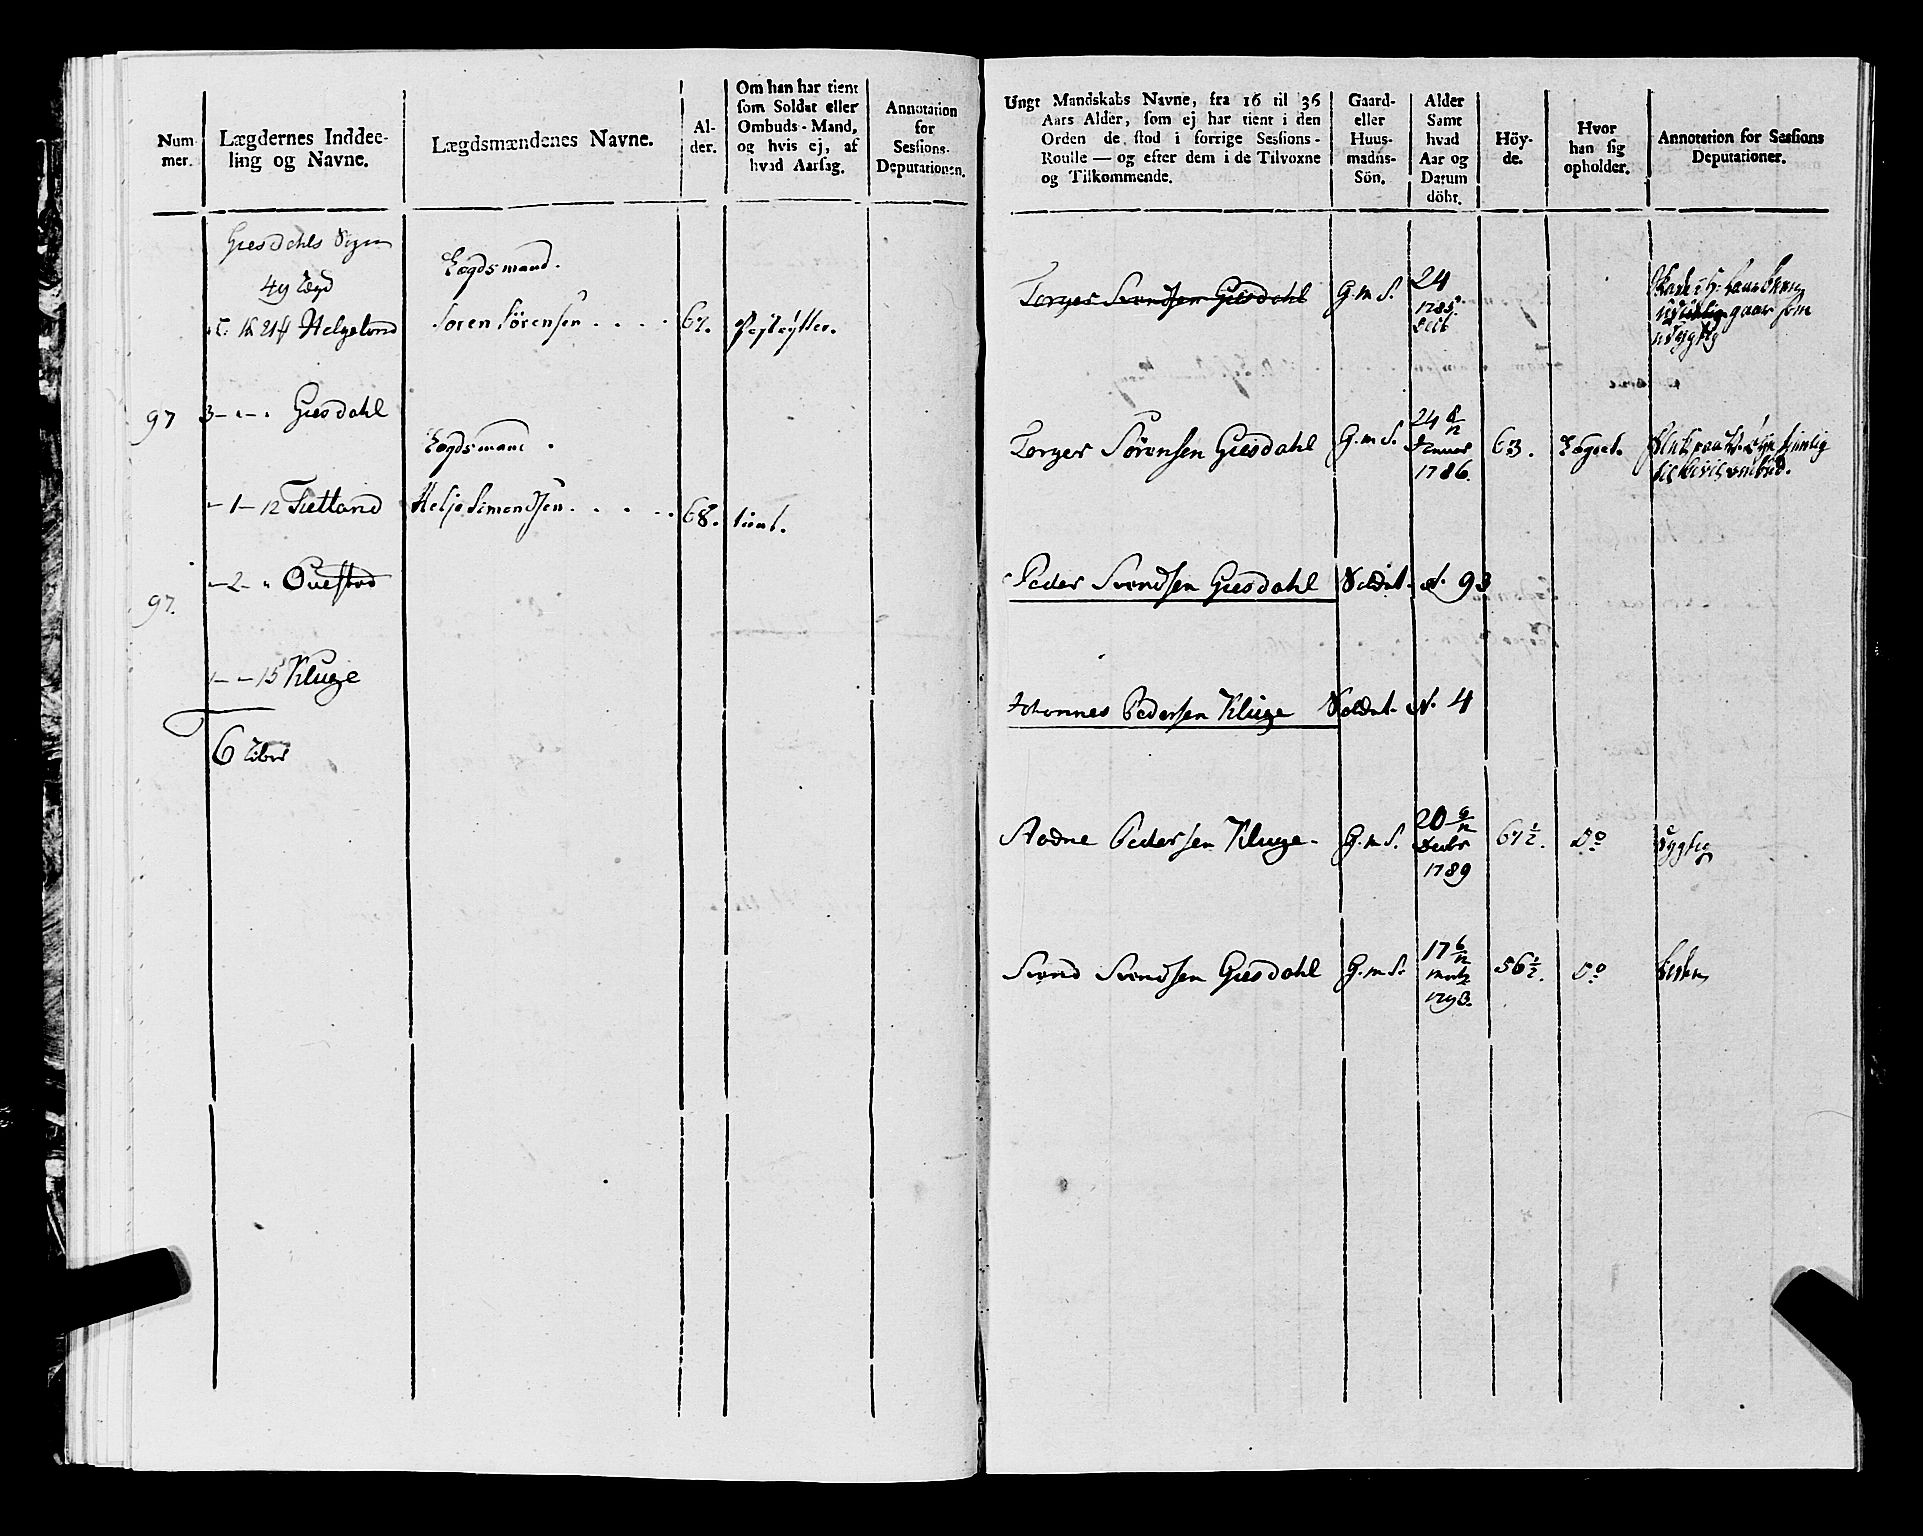 Num-
mer.
Lægdernes Inddee-
ling og Navne.
Lægdsmændenes Navne.
Al-
der.
Om han har tient
som Soldat eller
Ombuds-Mand,
og hvis ej, af
hvad Aarsag.
Annotation
for
Sessions-
Deputationen.
Giesdahls Sogn
49 Lægd
Helgeland
Lægdsmand.
Soren Sörensen . . . . 67.
97 3 - " - " Giesdahl
Lægdsmand.
- 1 - 12 Fietland Helje Simondsen . . . . . 68. tient.
97. - 2 - " Ouestad
1 - - 15 Kluge
6
Ungt Mandskabs Navne, fra 16 til 36
Aars Alder, som ej har tient i den
Orden de stod i forrige Sessions-
Roulle — og efter dem i de Tilvoxne
og Tilkommende.
Gaard-
eller
Huus-
mands-
Sön.
Alder
Samt
hvad
Aar og
Datum
döbt.
Höy-
de.
Hvor
han sig
opholder.
Annotation for Sessions
Deputationer.
Torger Svendsen Giesdahl G. m S. 24
1785.
gaar som
udygtig
Torger Sörensen Giesdahl G. m S. 24 8/12
Januar
1786.
63. Lægdet.
Peder Svendsen Giesdahl Soldat N. 93
Johannes Pedersen Kluge Soldat N. 4
Aadne Pedersen Kluge - G. m S. 20 9/12
Decbr
1789
67 1/2. Do dygtig
Svend Svendsen Giesdahl G. m S. 17 6/12
Marts
1793.
56 1/2. Do